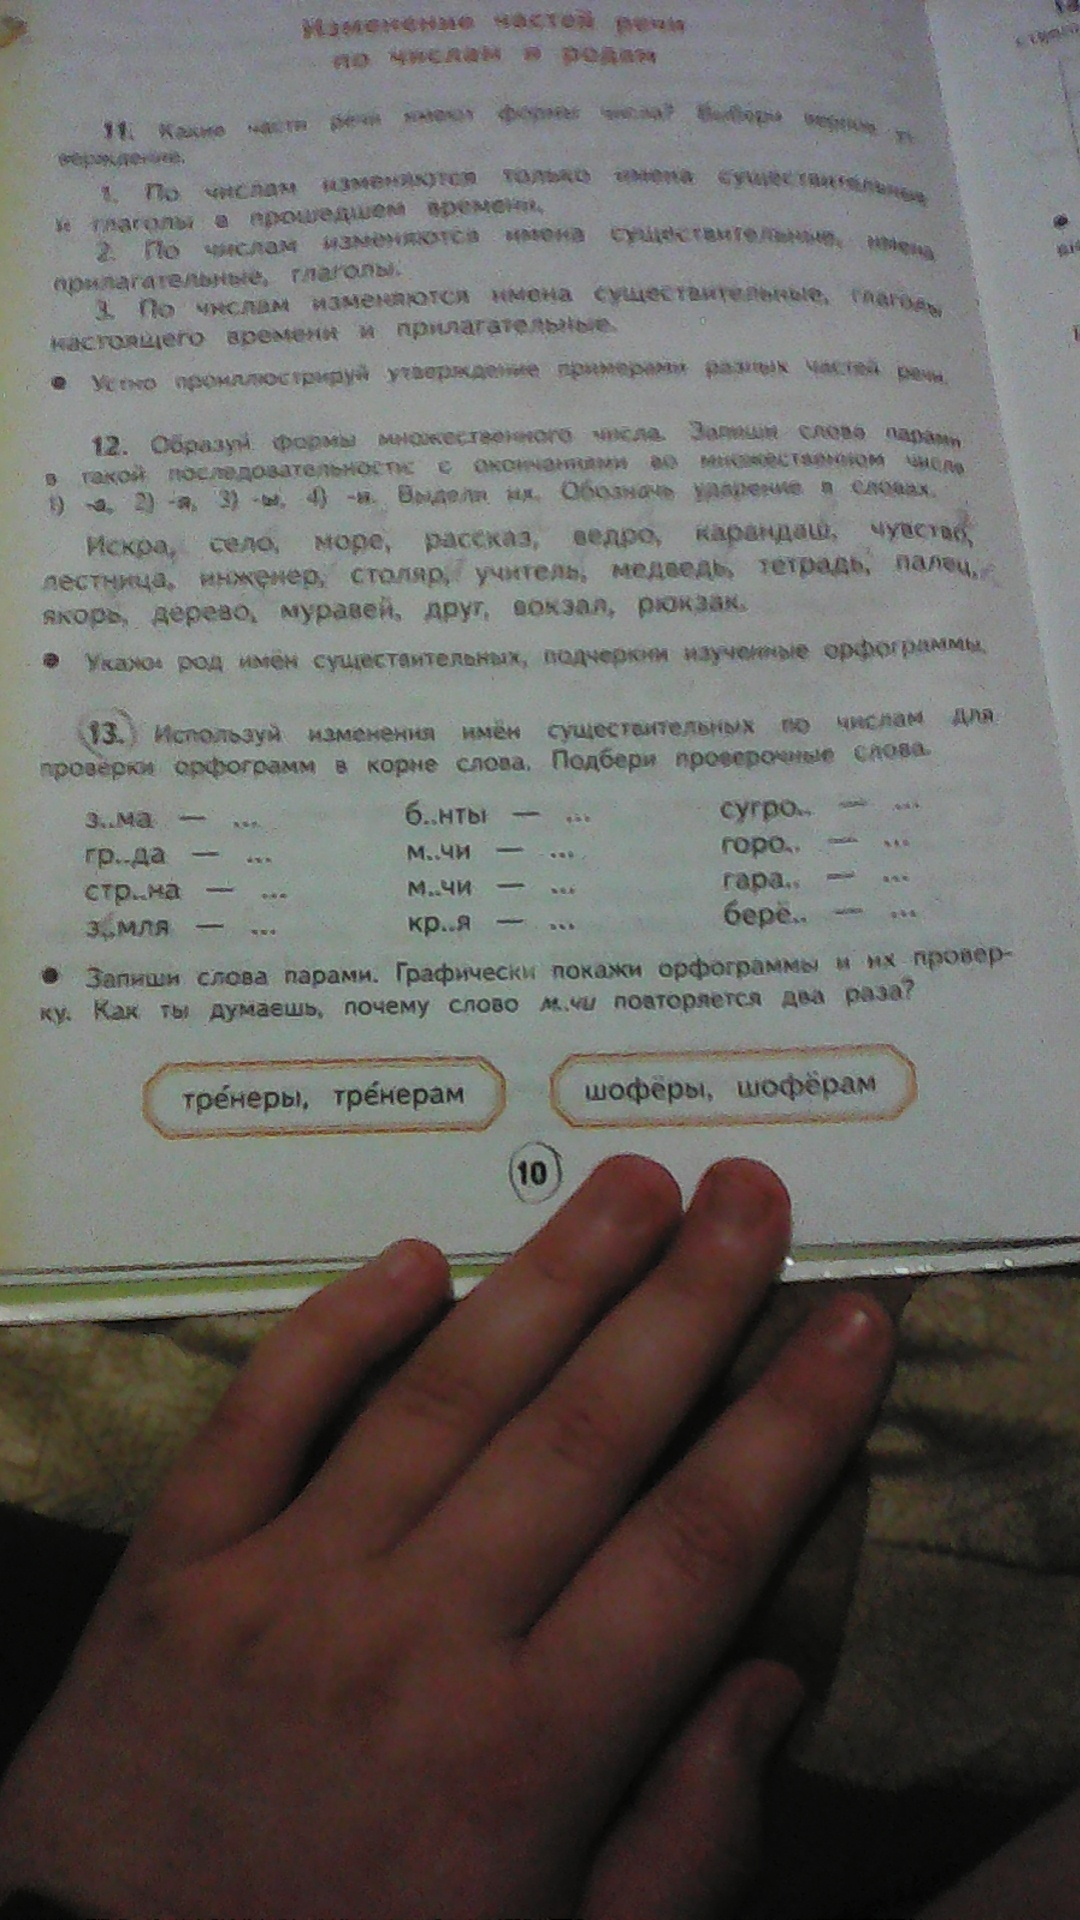 Изменение частей речи
по числам и родам
11. Какие части речи имеют формы числа? Выбери верное ут-
верждение.
1. По числам изменяются только имена существительные
и глаголы в прошедшем времени.
2. По числам изменяются имена существительные, имена
прилагательные, глаголы.
3. По числам изменяются имена существительные, глаголы
настоящего времени и прилагательные.
● Устно проиллюстрируй утверждение примерами разных частей речи.
12. Образуй формы множественного числа. Запиши слова парами
в такой последовательности: с окончаниями во множественном числе
1) -а, 2) -я, 3) -ы, 4) -и. Выдели их. Обозначь ударение в словах.
Искра, село, море, рассказ, ведро, карандаш, чувство,
лестница, инженер, столяр, учитель, медведь, тетрадь, палец,
якорь, дерево, муравей, друг, вокзал, рюкзак.
● Укажи род имён существительных, подчеркни изученные орфограммы.
13. Используй изменения имён существительных по числам для
проверки орфограмм в корне слова. Подбери проверочные слова.
з..ма — ... б..нты — ... сугро.. — ...
гр..да — ... м..чи — ... горо.. — ...
стр..на — ... м..чи — ... гара.. — ...
з..мля — ... кр..я — ... берё.. — ...
● Запиши слова парами. Графически покажи орфограммы и их провер-
ку. Как ты думаешь, почему слово м..чи повторяется два раза?
тре́неры, тре́нерам шофёры, шофёрам
10